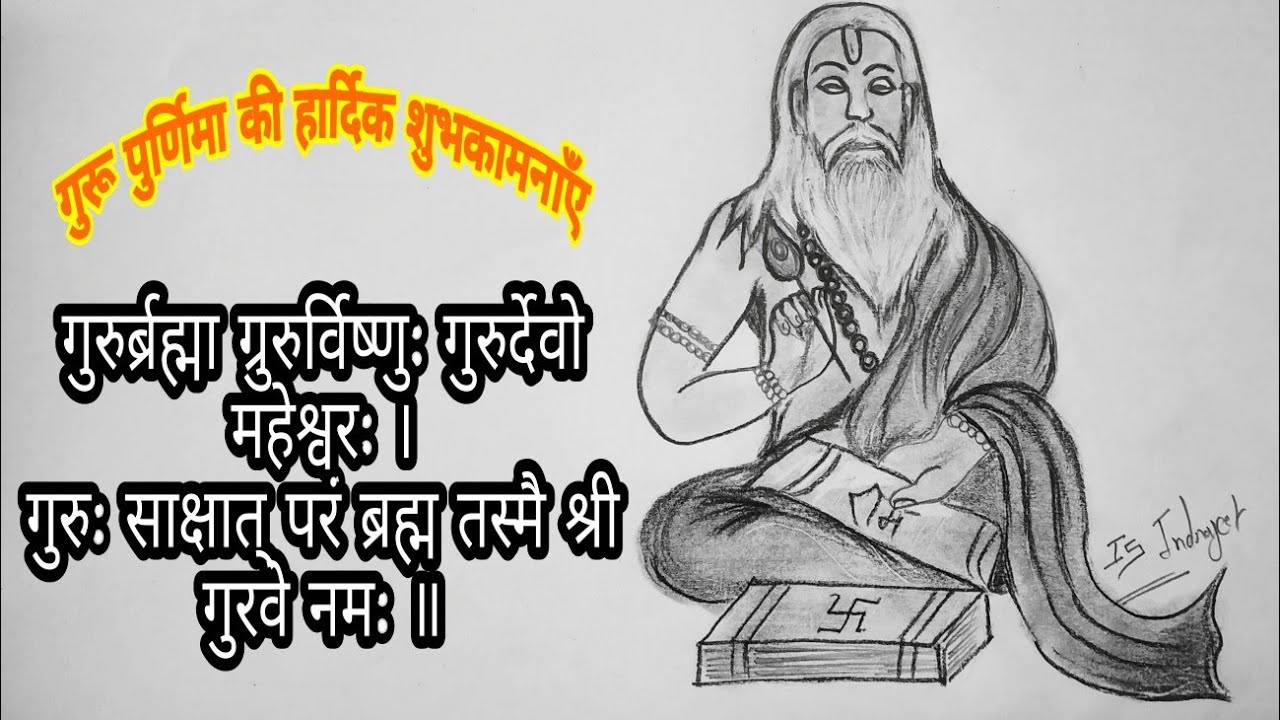 गुरू पुर्णिमा की हार्दिक शुभकामनाएँ
गुरुर्ब्रह्मा ग्रुरुर्विष्णुः गुरुर्देवो
महेश्वरः ।
गुरुः साक्षात् परं ब्रह्म तस्मै श्री
गुरवे नमः ॥
राम
IS Indrajeet